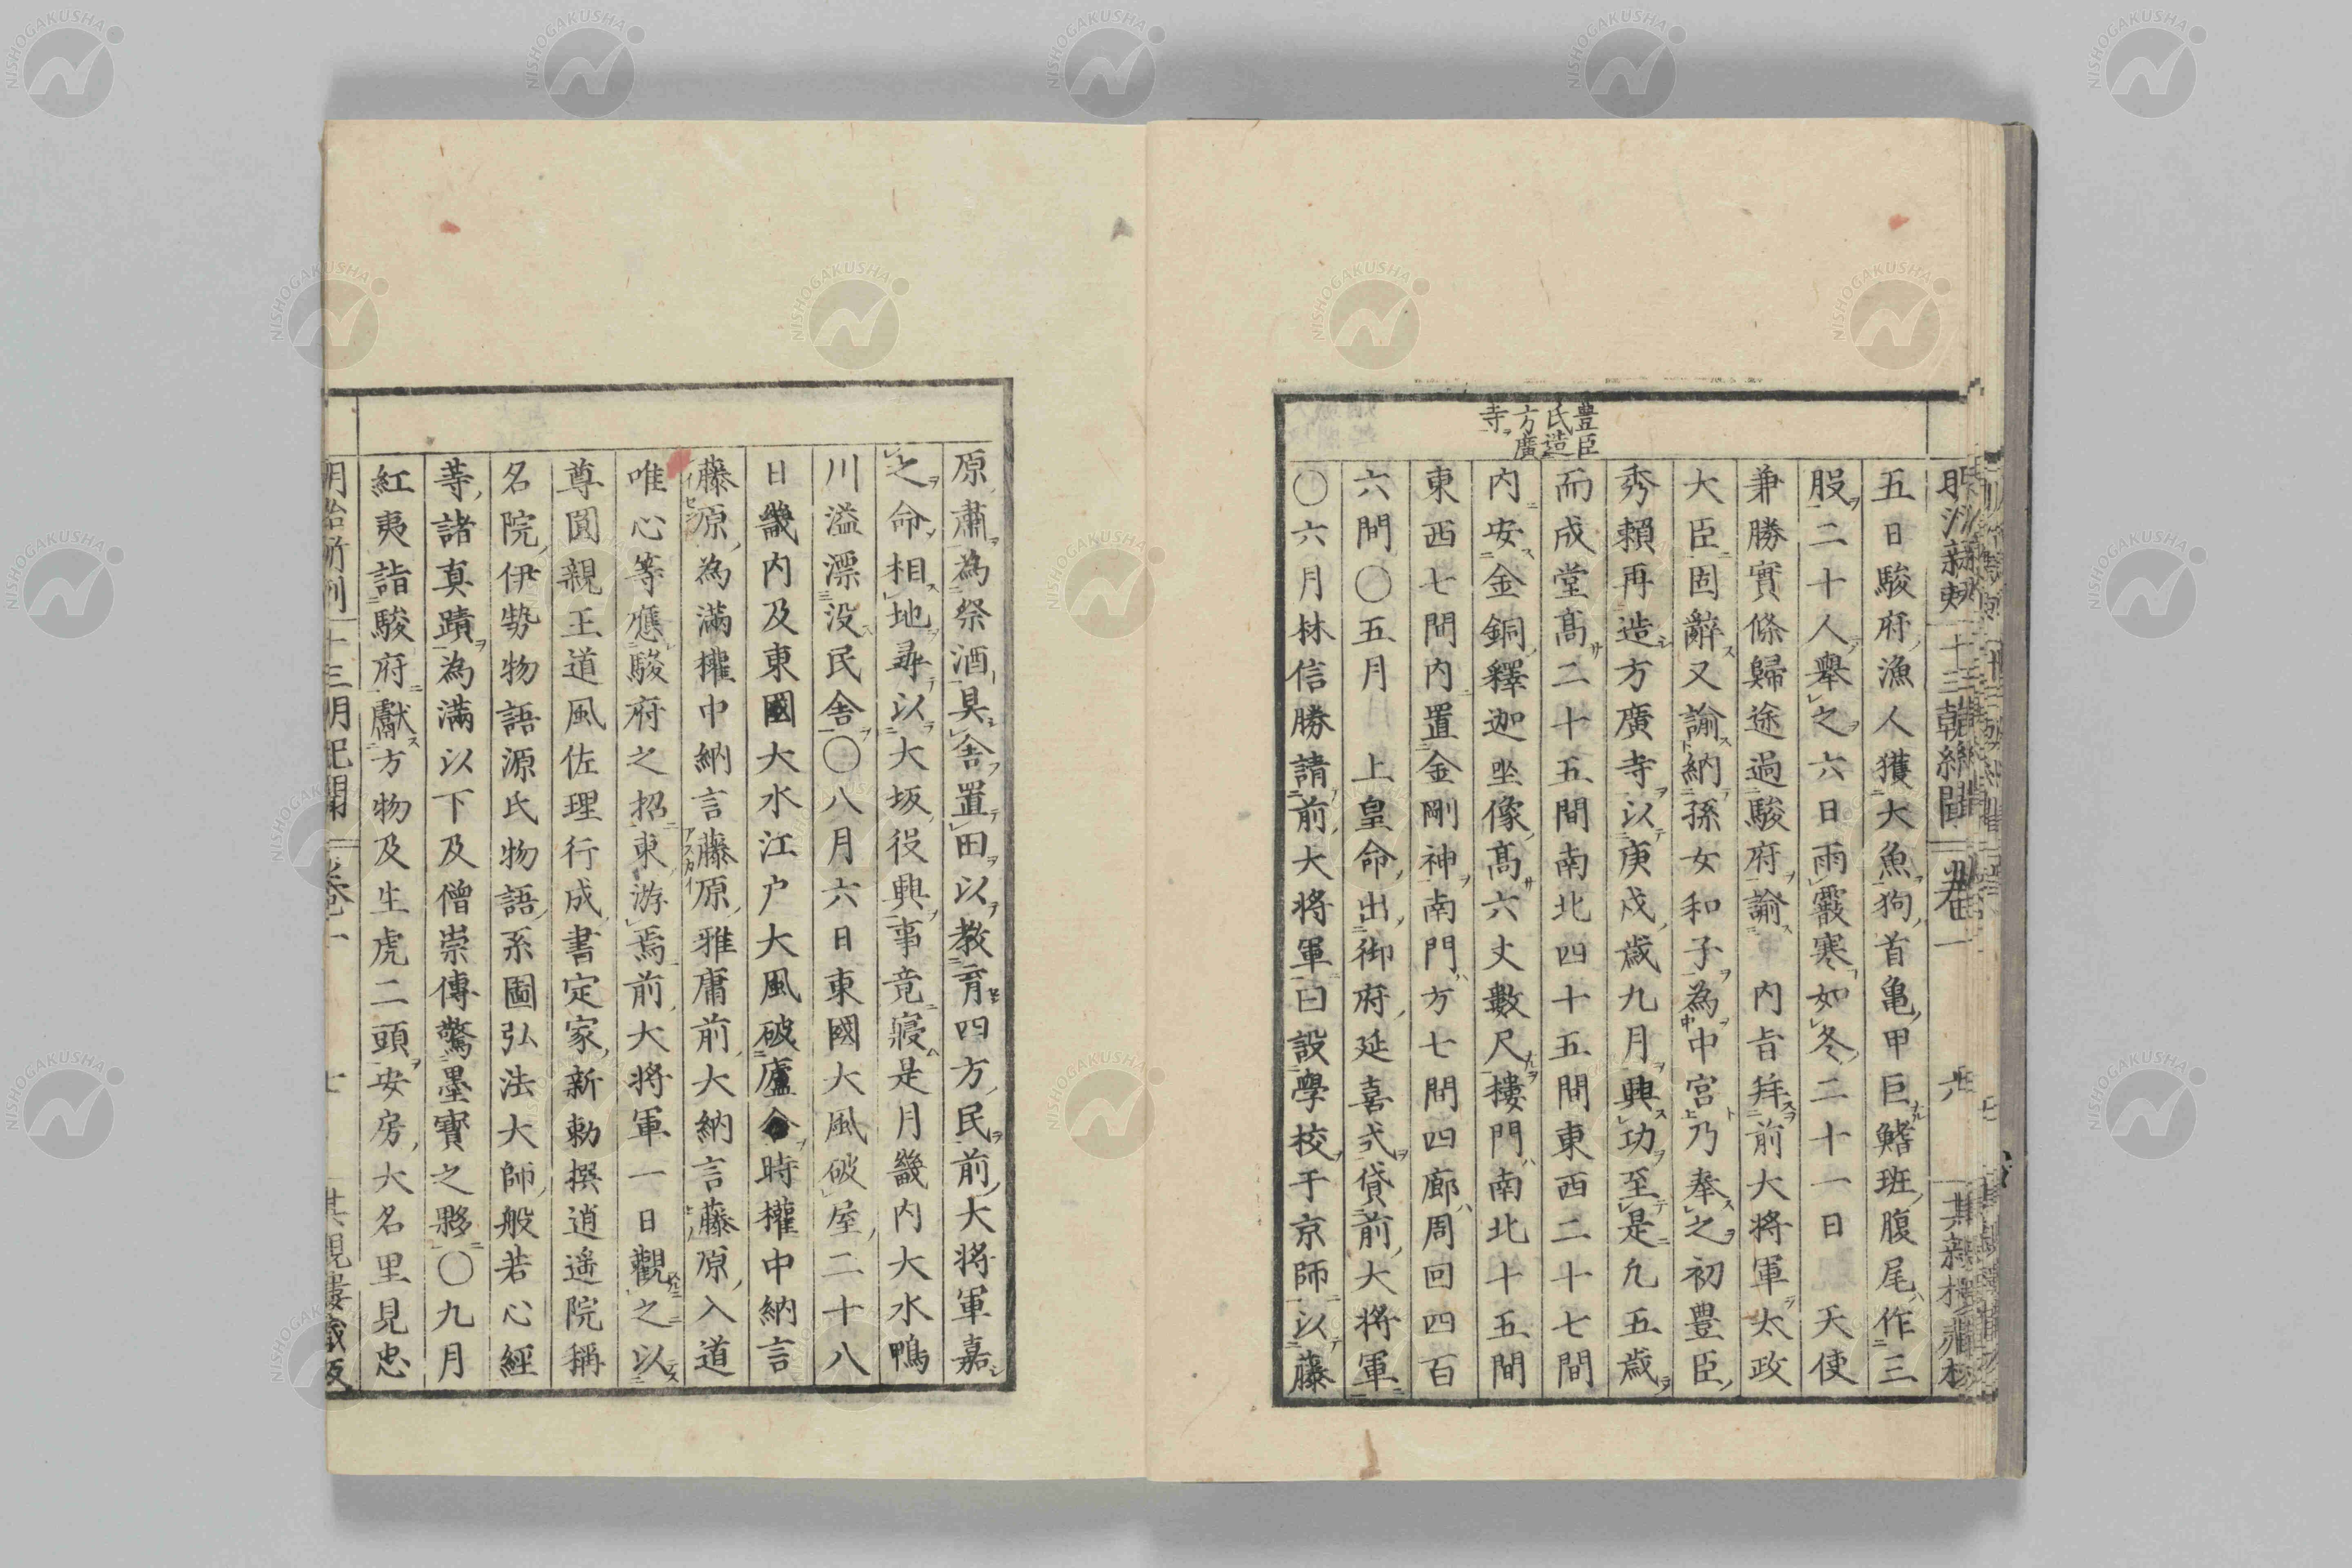 五日駿府漁人獲大魚狗首亀甲巨鰭班腹尾作三
股二十人舉之六日雨霰寒如冬二十一日 天使
兼勝實條歸途過駿府諭 内旨拜前大将軍太政
大臣固辭又諭納孫女和子為中宮乃奉之初豊臣
豊臣氏造方廣寺
秀頼再造方廣寺以庚戌歳九月興功至是凢五歳
而成堂髙二十五間南北四十五間東西二十七間
内安金銅釋迦坐像髙六丈數尺樓門南北十五間
東西七間内置金剛神南門方七間四廊周回四百
六間〇五月 上皇命出御府延喜式貸前大将軍
〇六月林信勝請前大将軍曰設學校于京師以藤
原肅為祭酒具舍置田以教育四方民前大将軍嘉
之命相地尋以大坂役興事竟寢是月畿内大水鴨
川溢漂没民舍〇八月六日東國大風破屋二十八
日畿内及東國大水江户大風破廬舍時權中納言
藤原為滿權中納言藤原雅庸前大納言藤原入道
唯心等應駿府之招東游焉前大将軍一日觀之以
尊圓親王道風佐理行成書定家新勅撰逍遥院稱
名院伊勢物語源氏物語系圖弘法大師般若心經
等諸真蹟為滿以下及僧崇傳驚墨寳之夥〇九月
紅夷詣駿府獻方物及生虎二頭安房大名里見忠